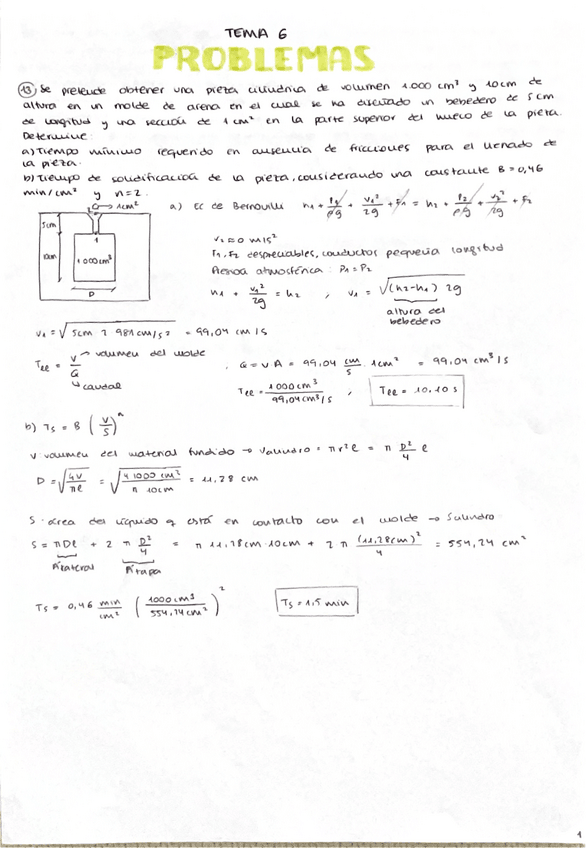 TEMA 6
PROBLEMAS
13) Se pretende obtener una pieza cilíndrica de volumen 1.000 cm³ y 10cm de
altura en un molde de arena en el cual se ha diseñado un bebedero de 5cm
de longitud y una sección de 1cm² en la parte superior del hueco de la pieza.
Determine:
a) Tiempo mínimo requerido en ausencia de fricciones para el llenado de
la pieza.
b) Tiempo de solidificación de la pieza, considerando una constante B = 0,46
min/cm² y n=2.
2 → 1cm²
5cm
1
10cm
1000cm³
D
a) Ec de Bernouilli h1 + P1/ρg + V1²/2g + F1 = h2 + P2/ρg + V2²/2g + F2
V2 ≈ 0 m/s²
F1, F2 despreciables, conductos pequeña longitud
Presión atmosférica: P1 = P2
h1 + V1²/2g = h2 , V1 = √(h2-h1) 2g
altura del
bebedero
V1 = √5cm 2 981cm/s² = 99,04 cm/s
Tll = V/Q → volumen del molde
↳ caudal
, Q = V A = 99,04 cm/s · 1cm² = 99,04 cm³/s
Tll = 1000cm³/99,04cm³/s , Tll = 10,10 s
b) Ts = B (V/S)ⁿ
V volumen del material fundido → Vcilindro = πr²l = π D²/4 l
D = √4V/πl = √4 1000 cm³/π 10cm = 11,28 cm
S: área del líquido q está en contacto con el molde → Scilindro
S = πDl + 2 π D²/4 = π 11,28cm·10cm + 2 π (11,28cm)²/4 = 554,24 cm²
Alateral Atapa
Ts = 0,46 min/cm² (1000cm³/554,24cm²)² Ts = 1,5 min
1